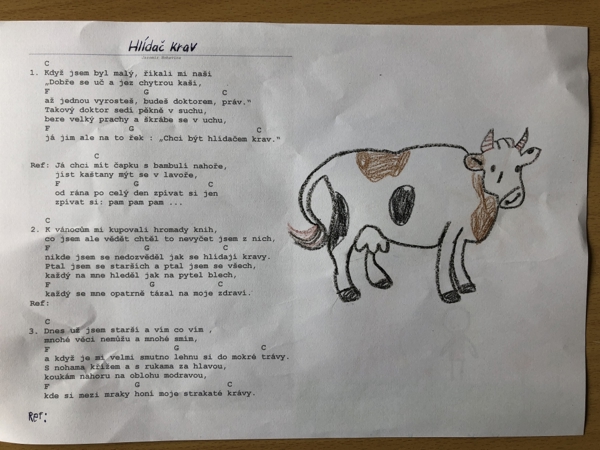 Hlídač krav
C
1. Když jsem byl malý, říkali mi naši
„Dobře se uč a jez chytrou kaši,
F G C
až jednou vyrosteš, budeš doktorem, práv."
Takový doktor sedí pěkně v suchu,
bere velký prachy a škrábe se v uchu,
F G C
já jim ale na to řek : „Chci být hlídačem krav."
C
Ref: Já chci mít čapku s bambulí nahoře,
jíst kaštany mýt se v lavoře,
F G C
od rána po celý den zpívat si jen
zpívat si: pam pam pam ...
C
2. K vánocům mi kupovali hromady knih,
co jsem ale vědět chtěl to nevyčet jsem z nich,
F G C
nikde jsem se nedozvěděl jak se hlídají kravy.
Ptal jsem se starších a ptal jsem se všech,
každý na mne hleděl jak na pytel blech,
F G C
každý se mne opatrně tázal na moje zdraví.
Ref:
C
3. Dnes už jsem starší a vím co vím ,
mnohé věci nemůžu a mnohé smím,
F G C
a když je mi velmi smutno lehnu si do mokré trávy.
S nohama křížem a s rukama za hlavou,
koukám nahoru na oblohu modravou,
F G C
kde si mezi mraky honí moje strakaté krávy.
Ref: